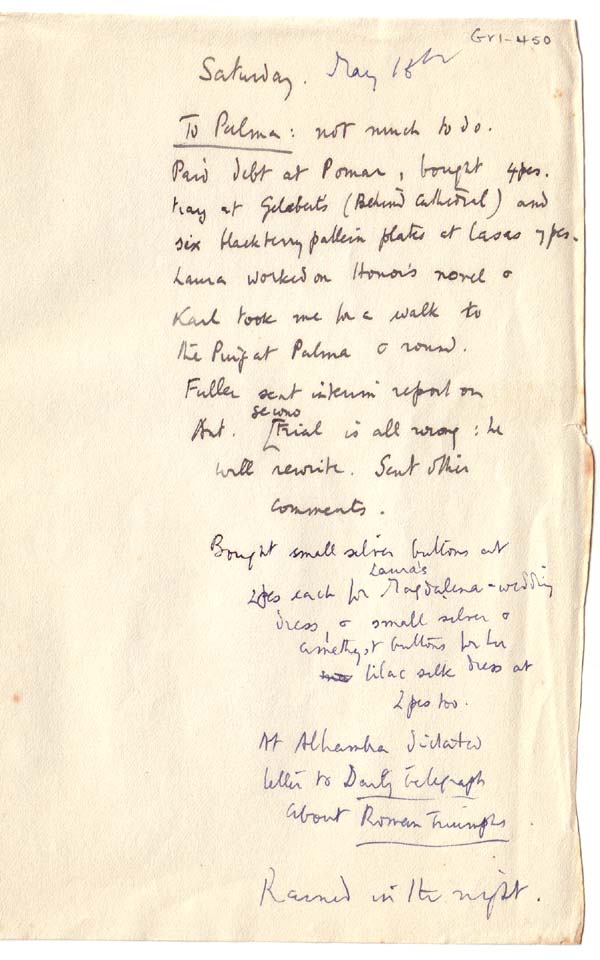 Gr1-450
Saturday. May 18th
To Palma: not much to do.
Paid debt at Pomar, bought 4pes.
tray at Gelabert's (Behind Cathedral) and
six blackberry pattern plates at Casas 7pes.
Laura worked on Honor's novel &
Karl took me for a walk to
the Puig at Palma & round.
Fuller sent interim report on
Ant. [second Trial is all wrong: he
will rewrite. Sent other
comments.
Bought small silver buttons at
2pes each for Laura's Magdalena-wedding
dress, & small silver &
amethyst buttons for her
lilac silk dress at
2 pes too.
At Alhambra dictated
letter to Daily Telegraph
about Roman Triumphs.
Rained in the night.